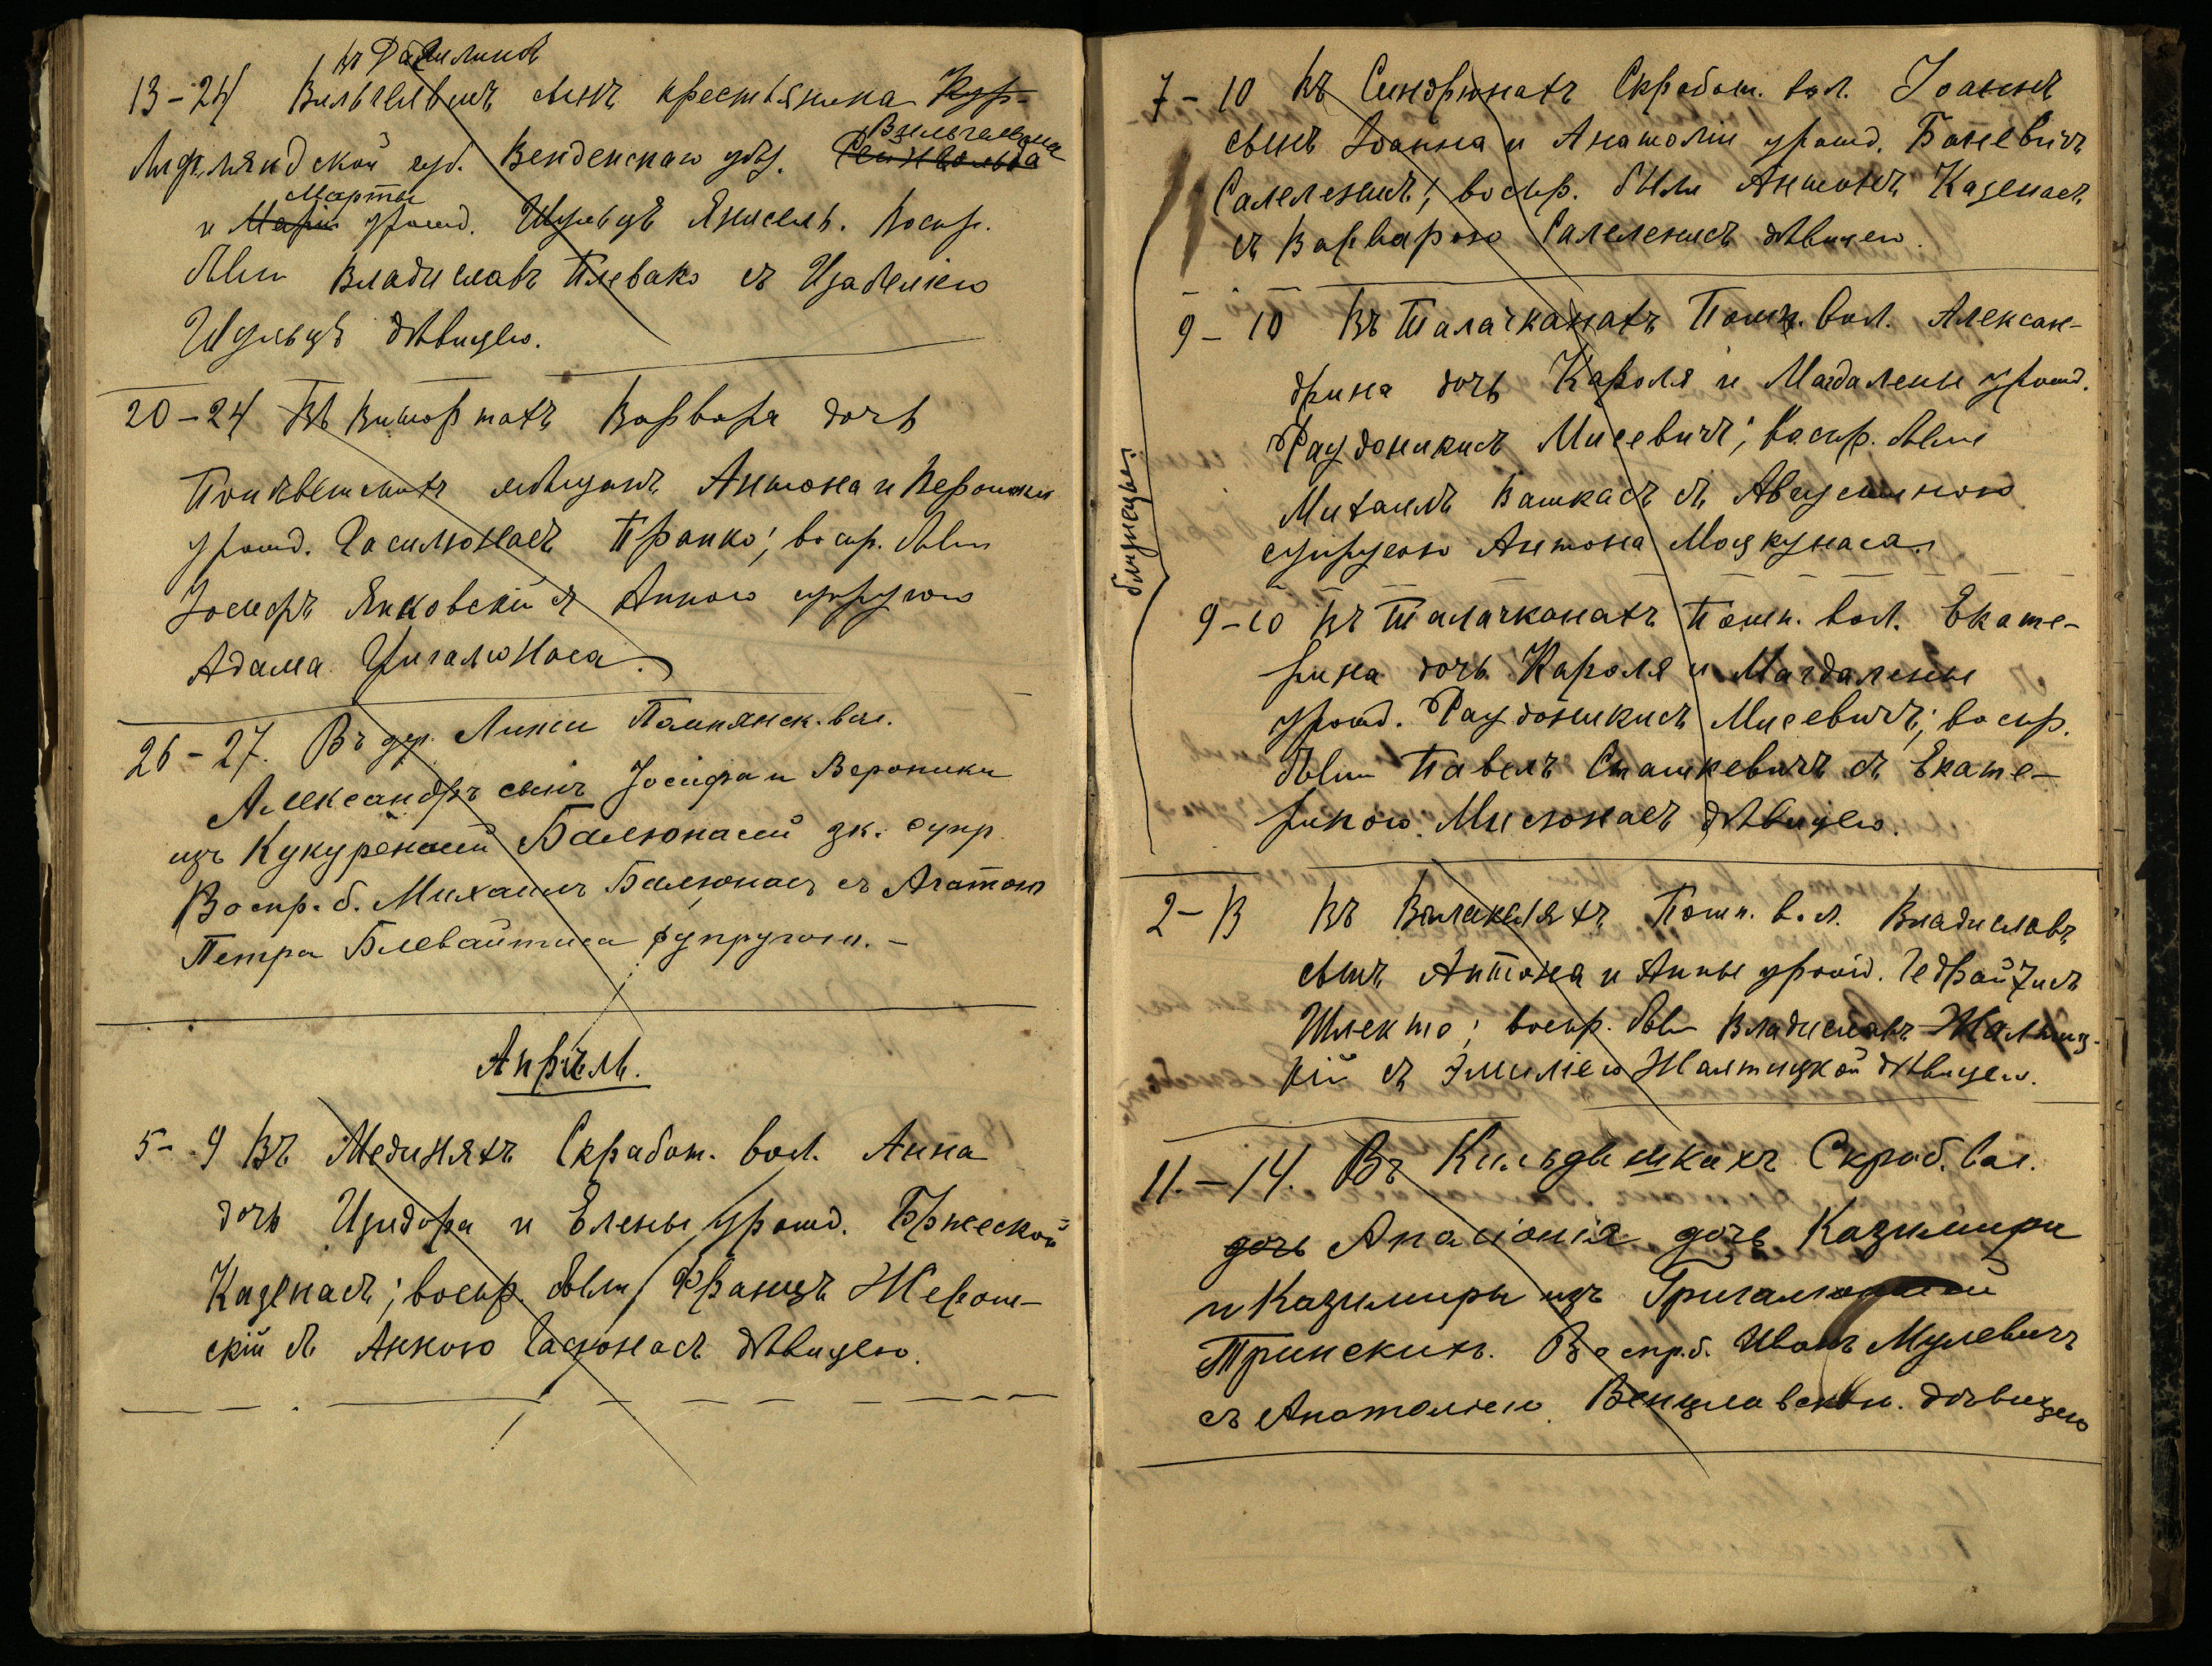 въ Данилинѣ
13 – 24 Вильгельмъ сынъ крестьянина Кур-
Лифляндской губ. Венденскаго уѣз. Вильгельма
и Маріи Марты урожд. Шульцъ Янисель. Воспр.
были Владиславъ Плевако съ Изабеллею
Шульцъ дѣвицею.
20 – 24 Въ Виторжтахъ Варвара дочь
Понѣвежскихъ мѣщанъ Антона и Вероники
урожд. Гасилюнасъ Пранко; воспр. были
Іосифъ Янковскій съ Анною супругою
Адама Цигалюнаса.
26 – 27. Въ дер. Липси Пампянск. вол.
Александръ сынъ Іосифа и Вероники
изъ Кукуренасъ Балюнасъ зк. супр.
Воспр. б. Михаилъ Балюнасъ съ Агатою
Петра Блевайтиса супругою. –
Апрѣль.
5 – 9 Въ Мединяхъ Скработ. вол. Анна
дочь Изидора и Елены урожд. Бржеской
Казенасъ; воспр. были Францъ Жером-
скій съ Анною Гасюнасъ дѣвицею.
7 – 10 Въ Синдрюнахъ Скработ. вол. Іоаннъ
сынъ Іоанна и Анатоліи урожд. Баневичъ
Салеленисъ; воспр. были Антонъ Казенасъ
съ Варварою Салеленисъ дѣвицею.
близнецы
9 – 10 Въ Талачканахъ Помп. вол. Алексан-
дрина дочь Кароля и Магдалены урожд.
Раудоникисъ Мисевичъ; воспр. были
Михаилъ Вашкасъ съ Августиною
супругою Антона Моцкунаса.
9 – 10 Въ Талачканахъ Помп. вол. Екате-
рина дочь Кароля и Магдалены
урожд. Раудоникисъ Мисевичъ; воспр.
были Павелъ Сташкевичъ съ Екате-
риною Мисюнасъ дѣвицею.
2 – 13 Въ Вилакаляхъ Помп. вол. Владиславъ
сынъ Антона и Анны урожд. Гедрайтисъ
Шлекто; воспр. были Владиславъ Жалтиц-
кій съ Эмиліею Жалтицкой дѣвицею.
11. – 14. Въ Кильдишкахъ Скраб. вол.
дочь Апалонія дочь Казимира
и Казимиры изъ
Тринскихъ. Воспр. б. Иванъ Мулевичъ
съ Анатоліею Венцлавскою дѣвицею